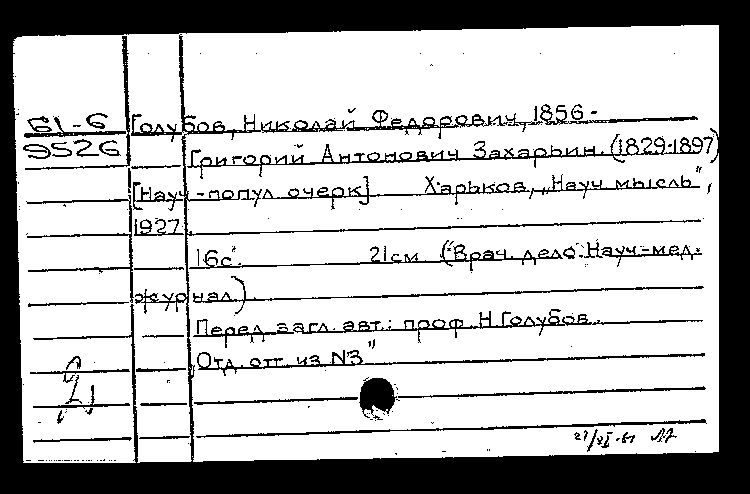 61-6 Голубов, Николай Федорович, 1856 -
9526 Григорий Антонович Захарьин. (1829-1897)
[Науч-попул очерк] Харьков, „Науч мысль",
1927.
16с. 21см ("Врач. дело". Науч-мед.
журнал.)
Перед загл. авт.: проф. Н. Голубов.
„Отд. отт. из N3"